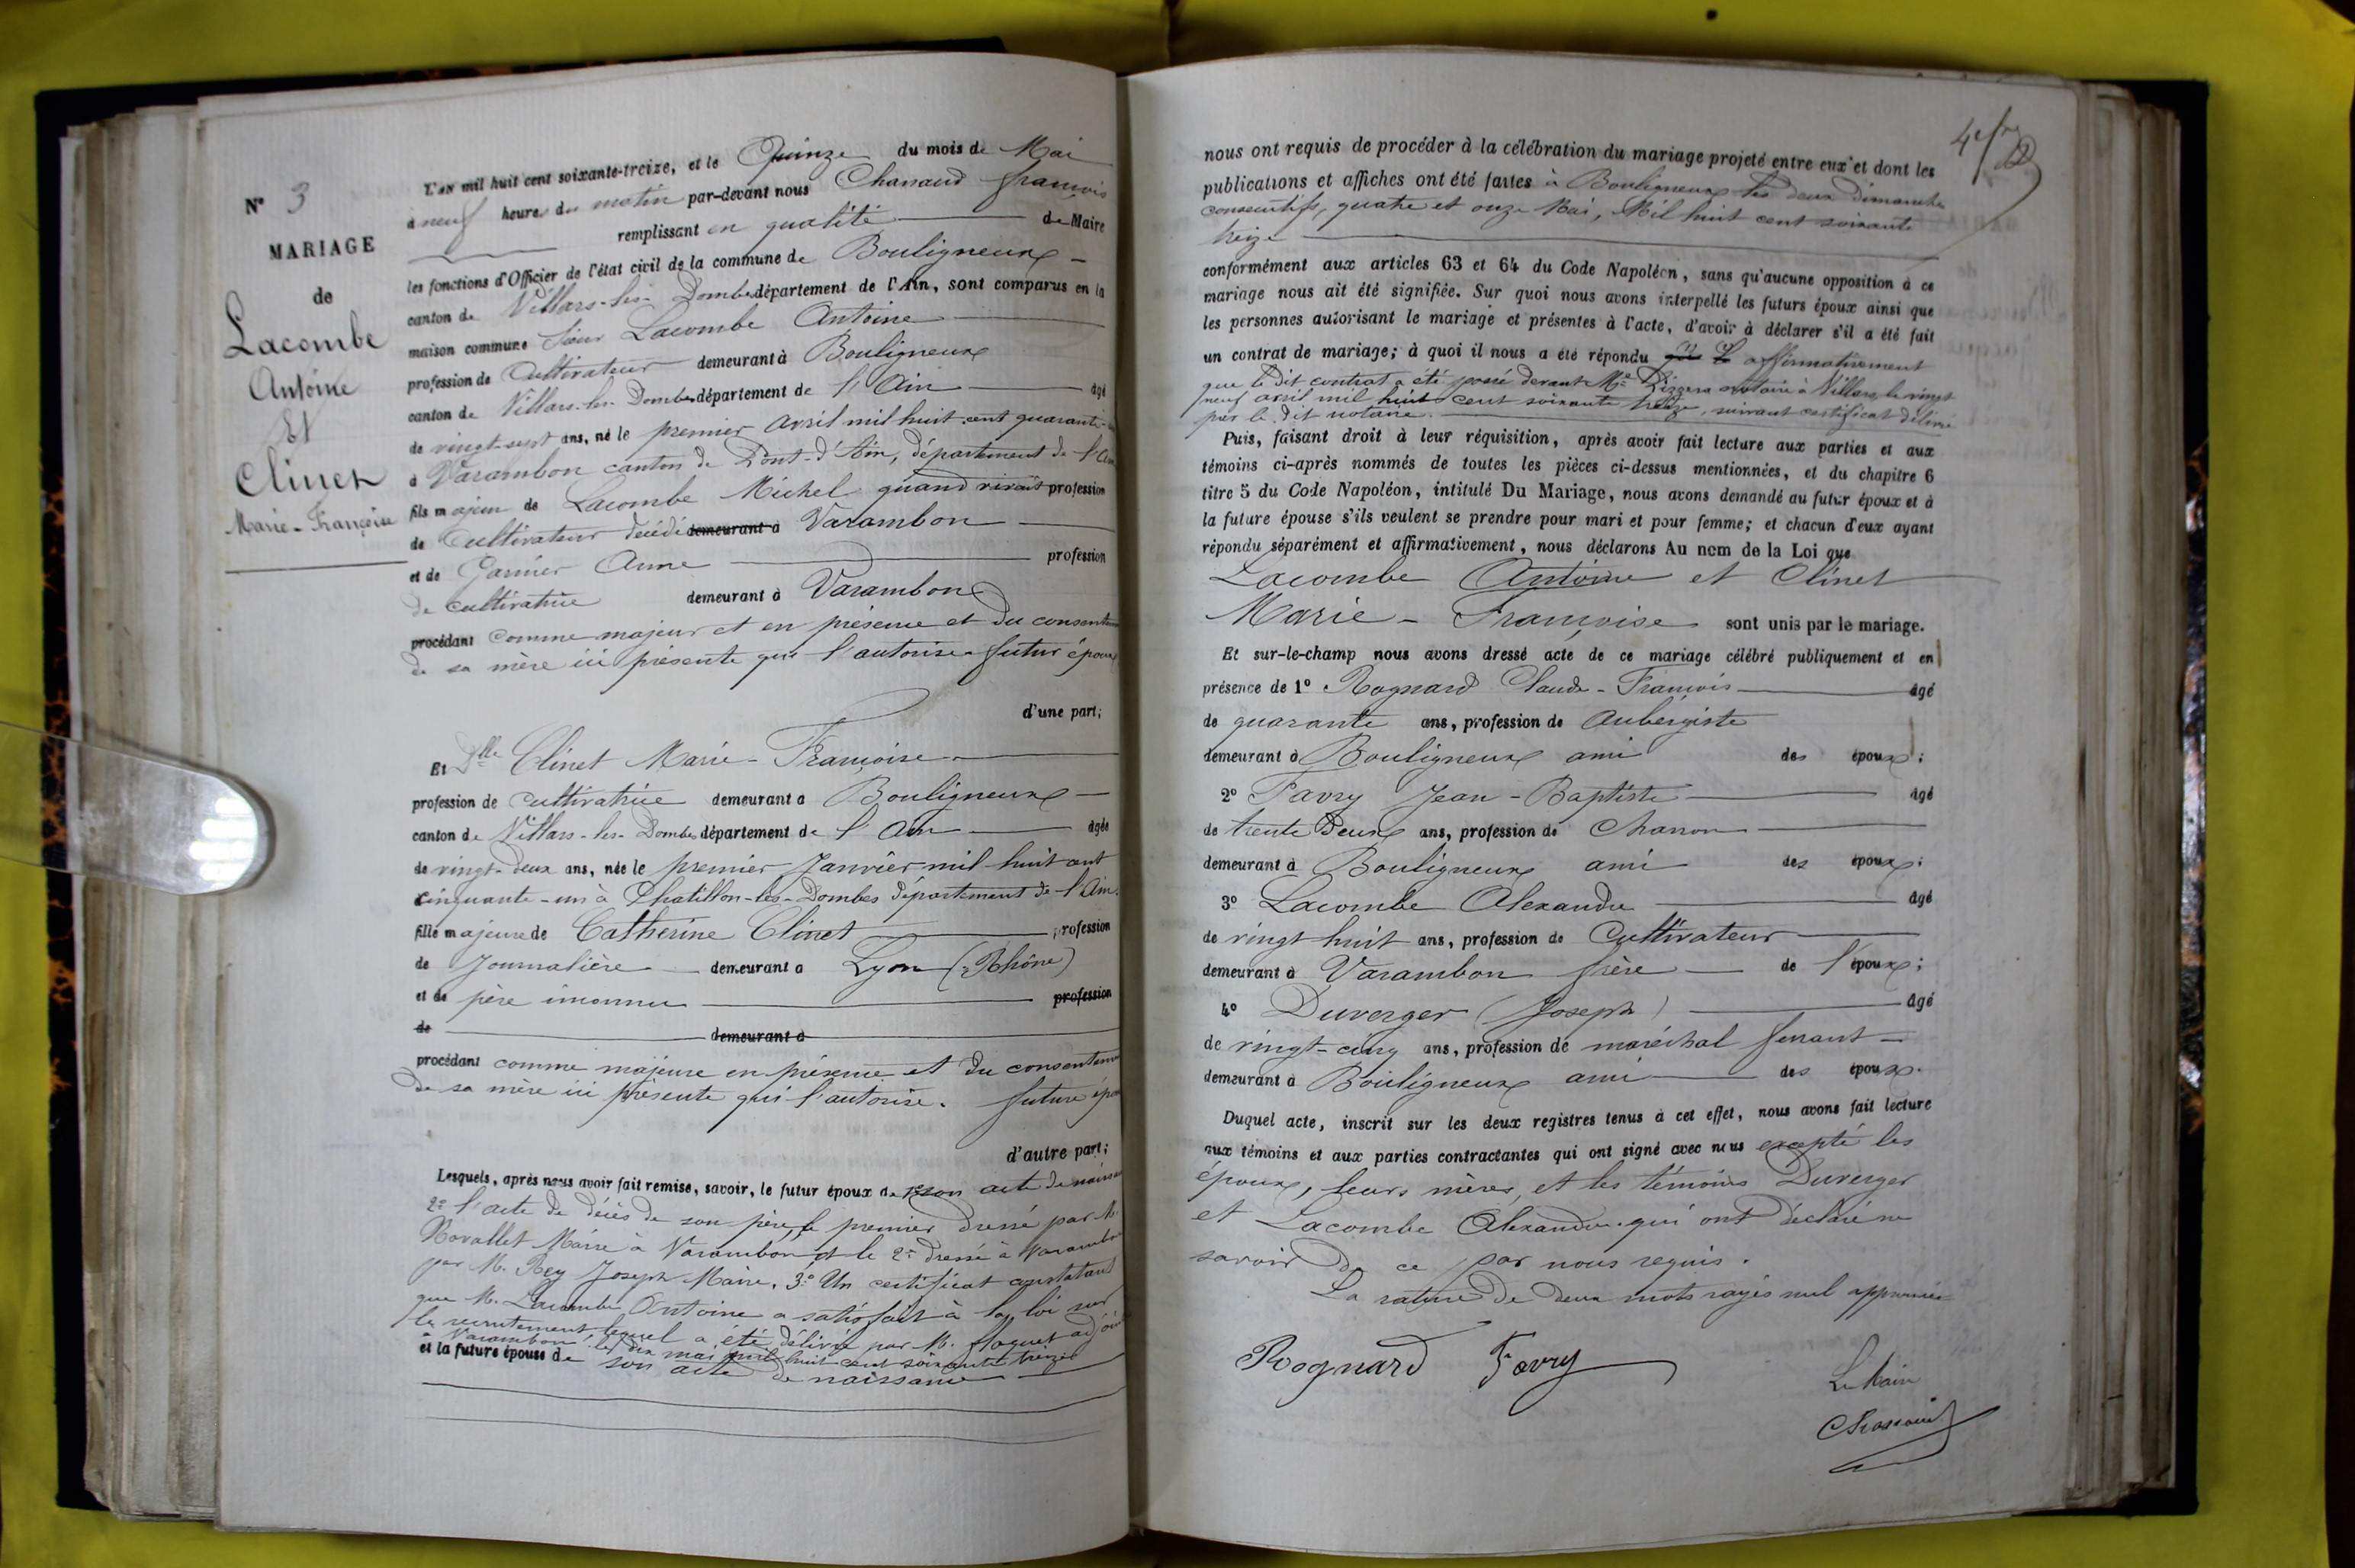 N° 3
MARIAGE
de
Lacombe
Antoine
Et
Clinet
Marie-Françoise
L'an mil huit cent soixante-treize, et le Quinze du mois de Mai
à neuf heures du matin par-devant nous Chanaud françois
remplissant en qualité de Maire
les fonctions d'Officier de l'état civil de la commune de Bouligneux
canton de Villars-les-Dombes département de l'Ain, sont comparus en la
maison commune Sieur Lacombe Antoine
profession de Cultivateur demeurant à Bouligneux
canton de Villars-les-Dombes département de l'Ain âgé
de vingt-sept ans, né le premier avril mil huit cent quarante
à Varambon canton de Pont-d'Ain, département de l'Ain
fils majeur de Lacombe Michel quand vivait profession
de Cultivateur décédé demeurant à Varambon
et de Garnier Anne profession
de cultivatrice demeurant à Varambon
procédant comme majeur et en présence et du consentem
de sa mère ici présente qui l'autorise futur époux
d'une part;
Et Dlle Clinet Marie-Françoise
profession de cultivatrice demeurant à Bouligneux
canton de Villars-les-Dombes département de l'Ain âgée
de vingt-deux ans, née le premier Janvier mil huit cent
cinquante-un à Chatillon-les-Dombes département de l'Ain.
fille majeure de Catherine Clinet profession
de Journalière demeurant à Lyon (Rhône)
et de père inconnu profession
de demeurant à
procédant comme majeure en présence et du consentem
de sa mère ici présente qui l'autorise. future épou
d'autre part;
Lesquels, après nous avoir fait remise, savoir, le futur époux de 1° son acte de naissa
2° l'acte de décès de son père, le premier dressé par M.
Maire à Varambon et le 2° dressé à Varambon
par M. Rey Joseph Maire. 3° Un certificat constatant
que M. Lacombe Antoine a satisfait à la loi sur
le recrutement lequel a été délivré par M. adjoint
à Varambon, le dix mai mil huit cent soixante treize
et la future épouse de son acte de naissance
nous ont requis de procéder à la célébration du mariage projeté entre eux et dont les
publications et affiches ont été faites à Bouligneux les deux dimanches
consécutifs, quatre et onze Mai, Mil huit cent soixante
treize
conformément aux articles 63 et 64 du Code Napoléon, sans qu'aucune opposition à ce
mariage nous ait été signifiée. Sur quoi nous avons interpellé les futurs époux ainsi que
les personnes autorisant le mariage et présentes à l'acte, d'avoir à déclarer s'il a été fait
un contrat de mariage; à quoi il nous a été répondu affirmativement
que le dit contrat a été passé devant Me notaire à Villars, le vingt
neuf avril mil huit cent soixante treize, suivant certificat délivré
par le dit notaire.
Puis, faisant droit à leur réquisition, après avoir fait lecture aux parties et aux
témoins ci-après nommés de toutes les pièces ci-dessus mentionnées, et du chapitre 6
titre 5 du Code Napoléon, intitulé Du Mariage, nous avons demandé au futur époux et à
la future épouse s'ils veulent se prendre pour mari et pour femme; et chacun d'eux ayant
répondu séparément et affirmativement, nous déclarons Au nom de la Loi que
Lacombe Antoine et Clinet
Marie-Françoise sont unis par le mariage.
Et sur-le-champ nous avons dressé acte de ce mariage célébré publiquement et en
présence de 1° Rognard Claude-François âgé
de quarante ans, profession de Aubergiste
demeurant à Bouligneux ami des époux;
2° Favry Jean-Baptiste âgé
de trente deux ans, profession de Charron
demeurant à Bouligneux ami des époux;
3° Lacombe Alexandre âgé
de vingt huit ans, profession de Cultivateur
demeurant à Varambon frère de l'époux;
4° Duverger (Joseph) âgé
de vingt-cinq ans, profession de maréchal ferrant
demeurant à Bouligneux ami des époux.
Duquel acte, inscrit sur les deux registres tenus à cet effet, nous avons fait lecture
aux témoins et aux parties contractantes qui ont signé avec nous excepté les
époux, leurs mères, et les témoins Duverger
et Lacombe Alexandre qui ont déclaré ne
savoir de ce par nous requis.
La rature de deux mots rayés nul approuvée
Rognard Favry
Le Maire
Chanaud